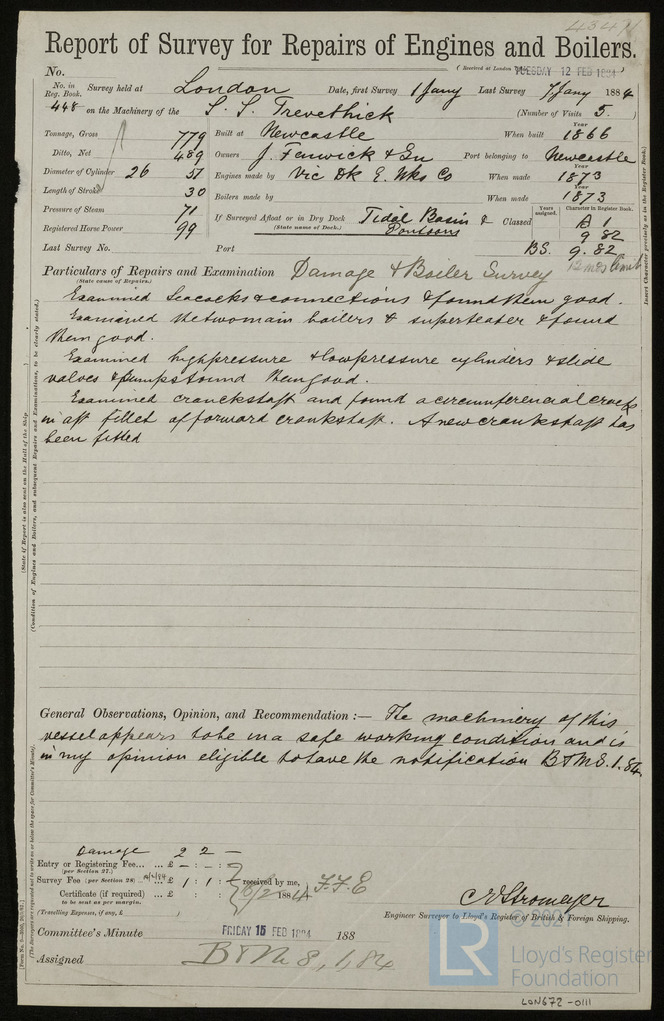 43471
Report of Survey for Repairs of Engines and Boilers.
No. (Received at London TUESDAY 12 FEB 1884)
No. in Reg. Book. Survey held at London Date, first Survey 1 Jany Last Survey 7 Jany 1884
448 on the Machinery of the S. S. Trevethick (Number of Visits 5.)
Tonnage, Gross 779 Built at Newcastle When built Year 1866
Ditto, Net 489 Owners J. Fenwick & Port belonging to Newcastle
Diameter of Cylinder 26 51 Engines made by Vic Dk E. Wks Co When made Year 1873
Length of Stroke 30 Boilers made by When made Year 1873
Pressure of Steam 71 If Surveyed Afloat or in Dry Dock Tidal Basin & Pontoons Classed Years assigned. Character in Register Book. A 1
(State name of Dock.)
Registered Horse Power 99 9 82
Last Survey No. Port BS. 9. 82
Particulars of Repairs and Examination Damage & Boiler Survey
(State cause of Repairs.)
Examined Seacocks & connections & found them good.
Examined the two main boilers & superheater & found
them good.
Examined high pressure & low pressure cylinders & slide
valves & pumps found them good.
Examined cranckshaft and found a circumferencial crack
in aft fillet of forward crankshaft. A new crankshaft has
been fitted
(State if Report is also sent on the Hull of the Ship.)
(Condition of Engines and Boilers, and subsequent Repairs and Examinations, to be clearly stated.)
Insert Character precisely as in the Register Book.
General Observations, Opinion, and Recommendation :— The machinery of this
vessel appears to be in a safe working condition and is
in my opinion eligible to have the notification B & M S. 1. 84.
Damage 2 2 —
Entry or Registering Fee... ... £ — : — :
(per Section 27.)
Survey Fee (per Section 28) ... £ 1 : 1 : received by me, F. F. E
Certificate (if required) ... £ : : 16/2 1884
to be sent as per margin.
(Travelling Expenses, if any, £ )
C E Stromeyer
Engineer Surveyor to Lloyd's Register of British & Foreign Shipping.
Committee's Minute FRIDAY 15 FEB 1884 188
Assigned B & M S, 1, 84
(The Surveyors are requested not to write on or below the space for Committee's Minute).
© 2021
LR
Lloyd's Register
Foundation
LON672-0111